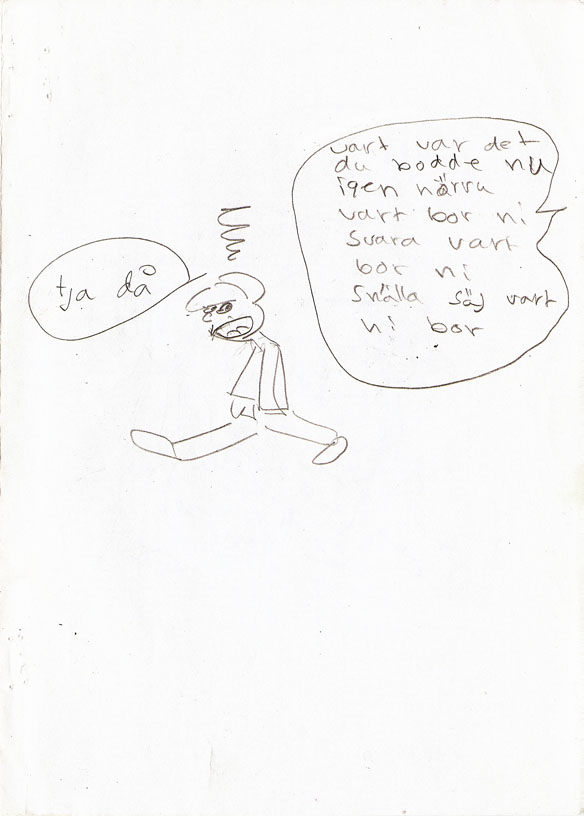 tja då
vart var det
du bodde nu
igen närru
vart bor ni
svara vart
bor ni
snälla säj vart
ni bor